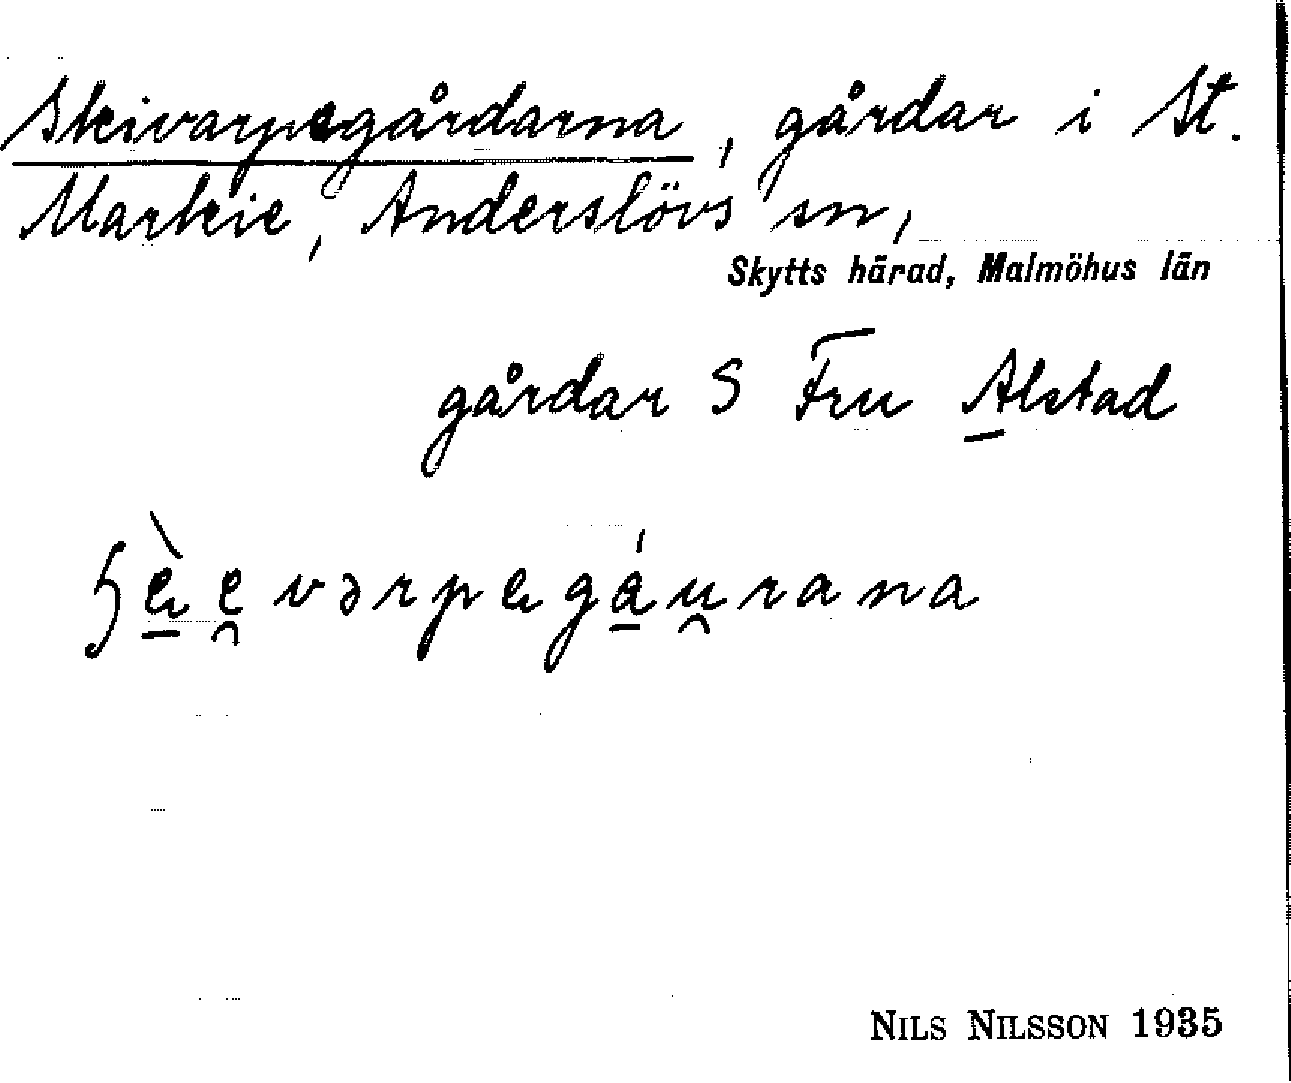 Skivarpegårdarna, gårdar i St.
Markie, Anderslövs sn,
Skytts härad, Malmöhus län
gårdar S Fru Alstad
ʃɛ̀e̯vərpɛgáu̯rana
NILS NILSSON 1935